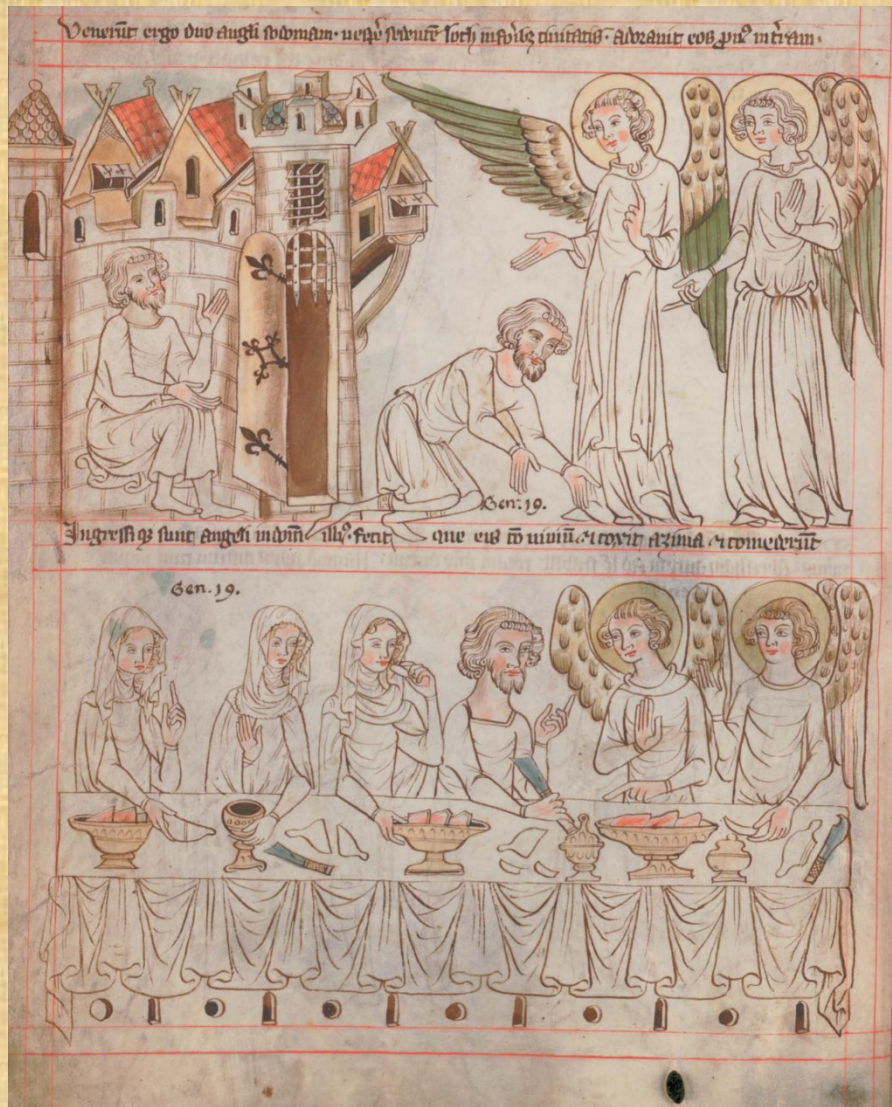 Venerūt ergo duo angli sodomam · uespe sedente loth in foribz ciuitatis · adorauit eos pnᵒ in t̄ram ·
Gen. 19.
Ingressi qz sunt angeli in domū illiᵒ · fecit que eis cō uiuiū & coxit azima & comederūt
Gen. 19.